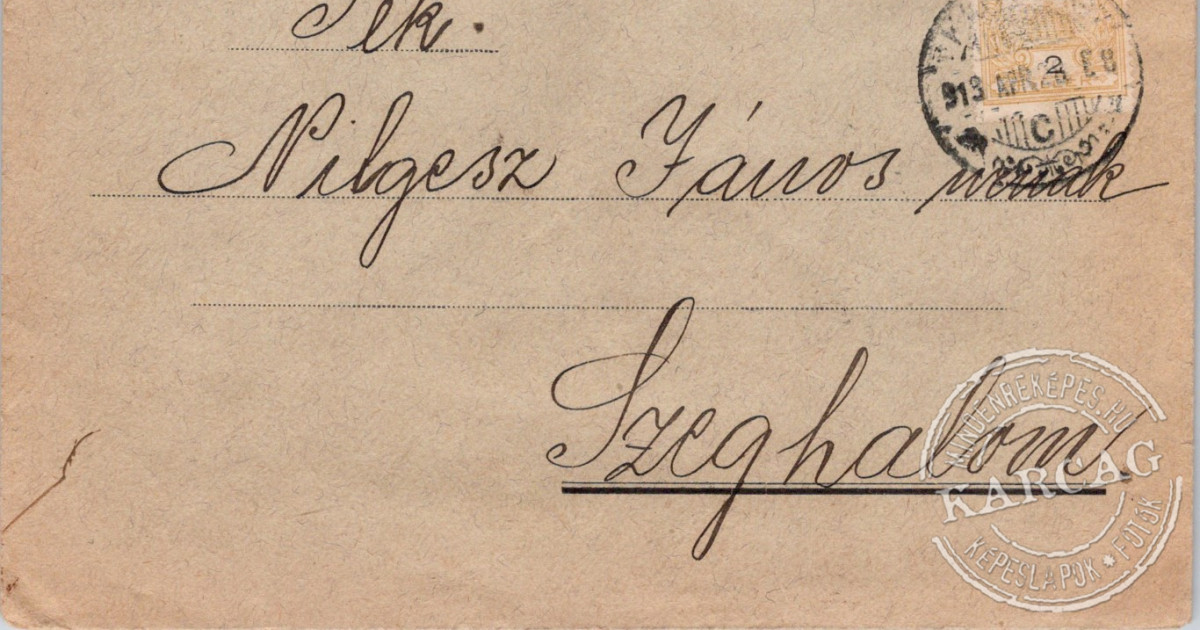 Tek.
Nilgesz János urnak
Szeghalom
2
913 APR. 2
C
MINDENRÉKÉPÉS.HU
KARCAG
KÉPESLAPOK * FOTÓK